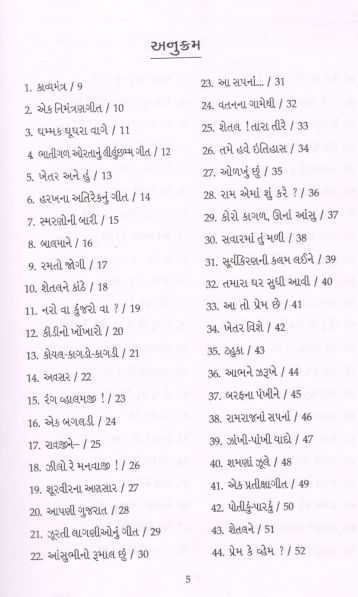 અનુક્રમ
1. કાવ્યમંત્ર / 9
2. એક નિમંત્રણગીત / 10
3. ઘમ્મક ઘૂઘરા વાગે / 11
4 ભાતીગળ ઓરતાનું લીલુંછમ્મ ગીત / 12
5. ખેતર અને હું / 13
6. હરખના અતિરેકનું ગીત / 14
7. સ્મરણોની બારી / 15
8. બાલમાને / 16
9. રમતો જોગી / 17
10. શેતલને કાંઠે / 18
11. નરો વા કુંજરો વા ? / 19
12. કીડીનો ખોંખારો / 20
13. કોયલ-કાગડો-કાગડી / 21
14. અવસર / 22
15. રંગ વ્હાલમજી ! / 23
16. એક બગલડી / 24
17. રાવજીને– / 25
18. ઝીલો રે મનવાજી ! / 26
19. શૂરવીરના અણસાર / 27
20. આપણી ગુજરાત / 28
21. ઝૂરતી લાગણીઓનું ગીત / 29
22. આંસુભીનો રૂમાલ છું / 30
23. આ સપનાં... / 31
24. વતનના ગામેથી / 32
25. શેતલ ! તારા તીરે / 33
26. તમે હવે ઇતિહાસ / 34
27. ઓળખું છું / 35
28. રામ એમાં શું કરે ? / 36
29. કોરો કાગળ, ઊનાં આંસુ / 37
30. સવારમાં તું મળી / 38
31. સૂર્યકિરણની કલમ લઈને / 39
32. તમારા ઘર સુધી આવી / 40
33. આ તો પ્રેમ છે / 41
34. ખેતર વિશે / 42
35. ટહુકા / 43
36. આભને ઝરૂખે / 44
37. બરફના પંખીને / 45
38. રામરાજનાં સપનાં / 46
39. ઝાંખી-પાંખી યાદો / 47
40. શમણાં ઝૂલે / 48
41. એક પ્રતીક્ષાગીત / 49
42. પોતીકું-પારકું / 50
43. શેતલને / 51
44. પ્રેમ કે વ્હેમ ? / 52
5